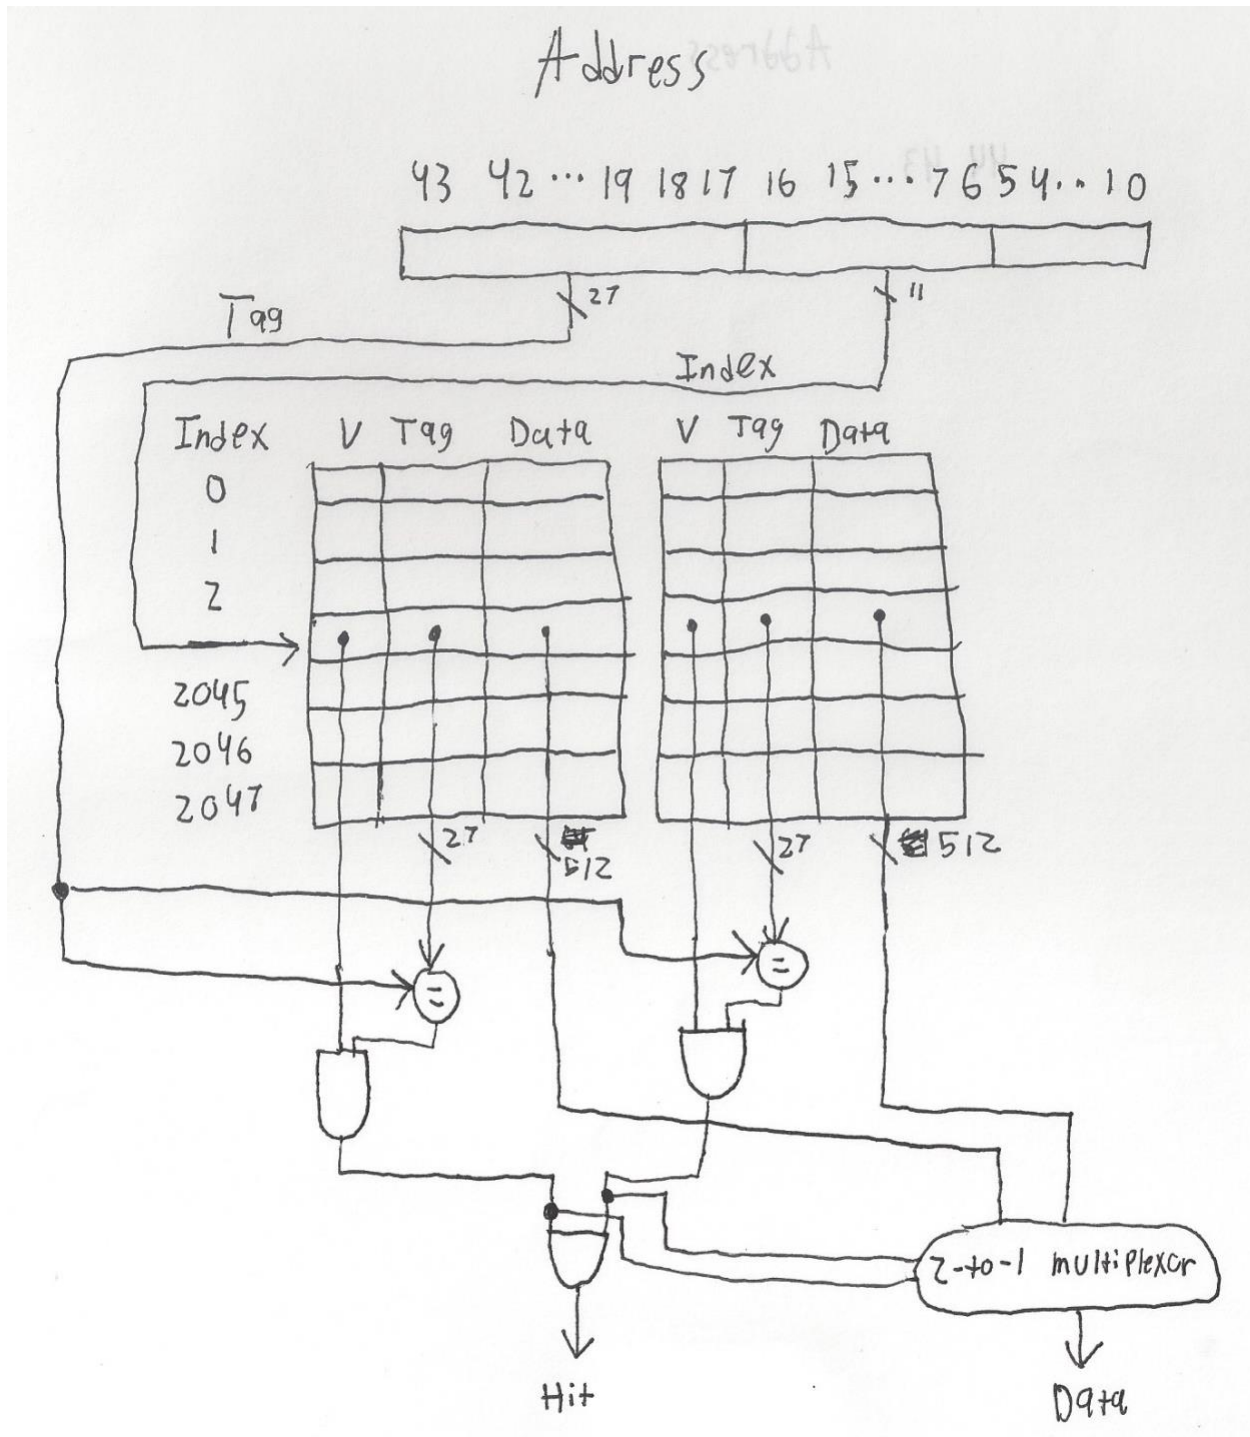 Address
43 42 ... 19 18 17 16 15 ... 7 6 5 4 ... 1 0
27 11
Tag
Index
Index V Tag Data V Tag Data
0
1
2
2045
2046
2047
27 512 27 512
= =
2-to-1 multiplexor
Hit Data